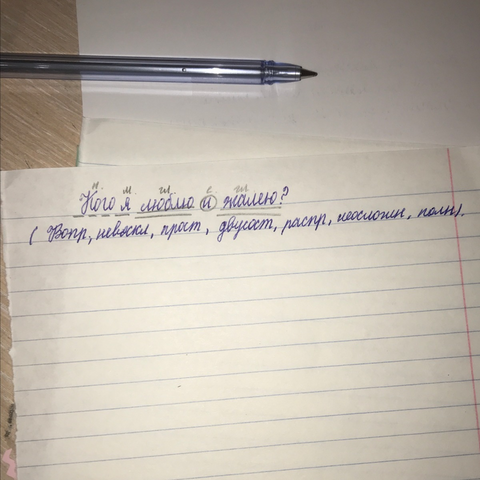 м. м. гл. с. гл.
Кого я люблю и жалею?
( Вопр, невоскл, прост, двусост, распр, неосложн, полн).